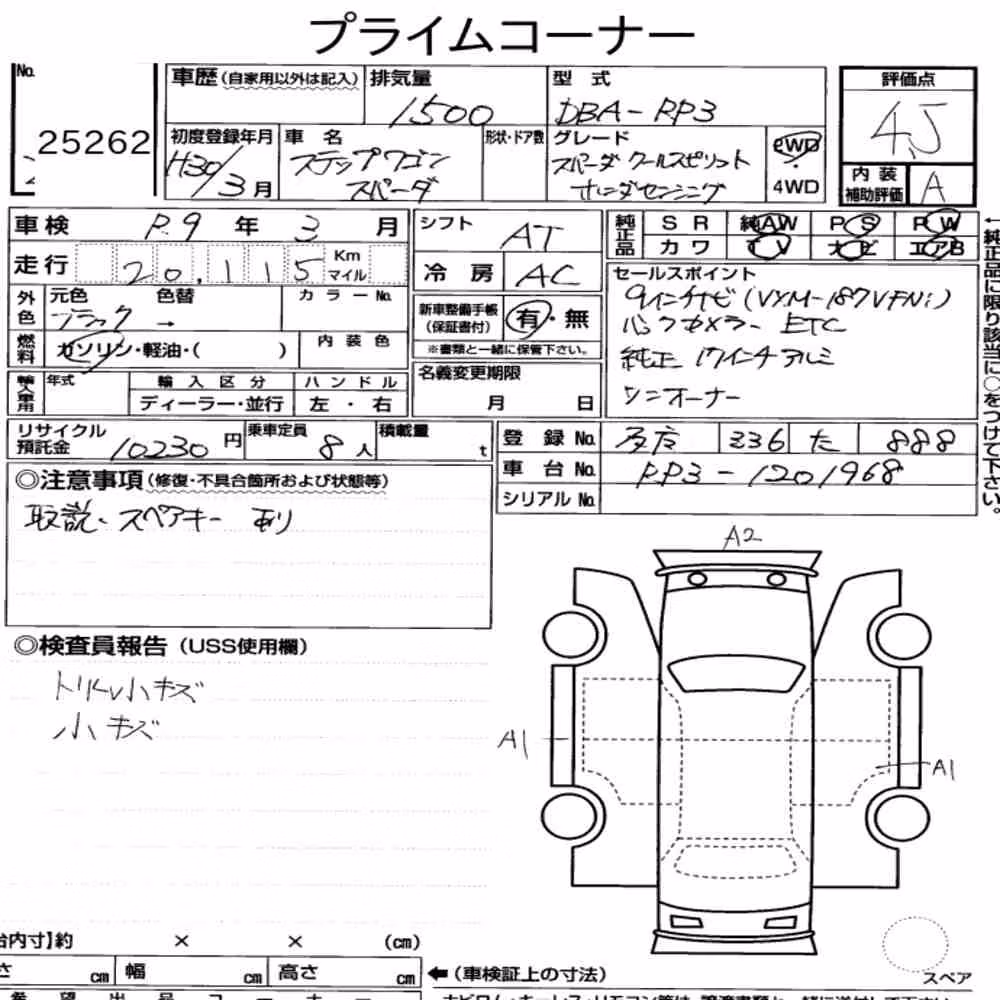 プライムコーナー
No.
25262
車歴（自家用以外は記入）
排気量
1500
型 式
DBA-RP3
評価点
4.5
初度登録年月
H30/3月
車 名
ステップワゴン
スパーダ
形状・ドア数
グレード
スパーダ クールスピリット
ホンダセンシング
2WD
・
4WD
内 装
補助評価
A
車検 R.9 年 3 月
走行 20,115 Km
マイル
シフト AT
冷 房 AC
純正品
S R 純AW P S P W
カ ワ T V ナ ビ エアB
外色
元色 色替
ブラック →
カラーNo.
燃料
ガソリン・軽油・( )
内 装 色
新車整備手帳
（保証書付）
有・無
※書類と一緒に保管下さい。
セールスポイント
9インチナビ(VXM-187VFNi)
バックカメラー ETC
純正 17インチアルミ
ワンオーナー
輸入車用
年式
輸 入 区 分
ディーラー・並行
ハ ン ド ル
左 ・ 右
名義変更期限
月 日
リサイクル
預託金 10230 円
乗車定員
8 人
積載量
t
登 録 No. 336 た 888
車 台 No. RP3-1201968
シリアル No.
←純正品に限り該当に○をつけて下さい。
◎注意事項（修復・不具合箇所および状態等）
取説・スペアキー あり
◎検査員報告（USS使用欄）
トリム小キズ
小キズ
A2
A1
A1
スペア
台内寸】約 × × (cm)
さ cm 幅 cm 高さ cm
←（車検証上の寸法）
希 望 出 品 コ ー ナ ー